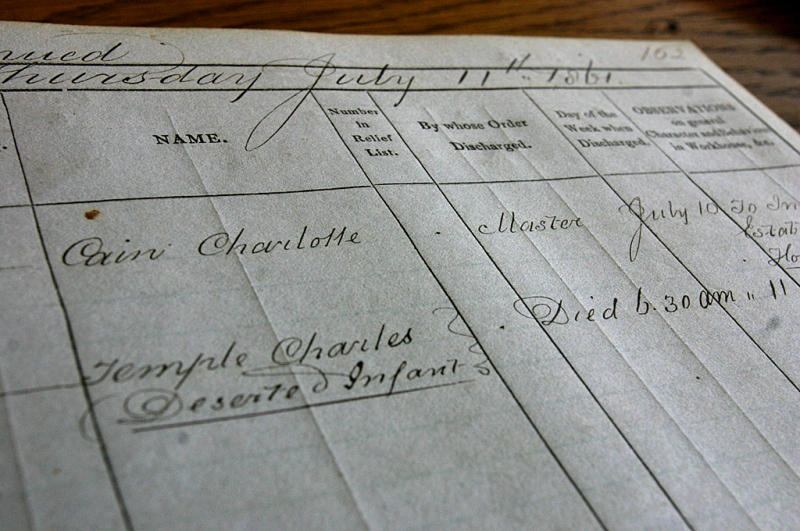 nued
163
Thursday July 11th 1861.
NAME.
Number in Relief List.
By whose Order Discharged.
Day of the Week when Discharged.
OBSERVATIONS on general Character and Behaviour in Workhouse, &c.
Cain Charlotte . Master July 10 To In
Estab
Ho
Temple Charles
(Deserted Infant . Died 6.30 am " 11